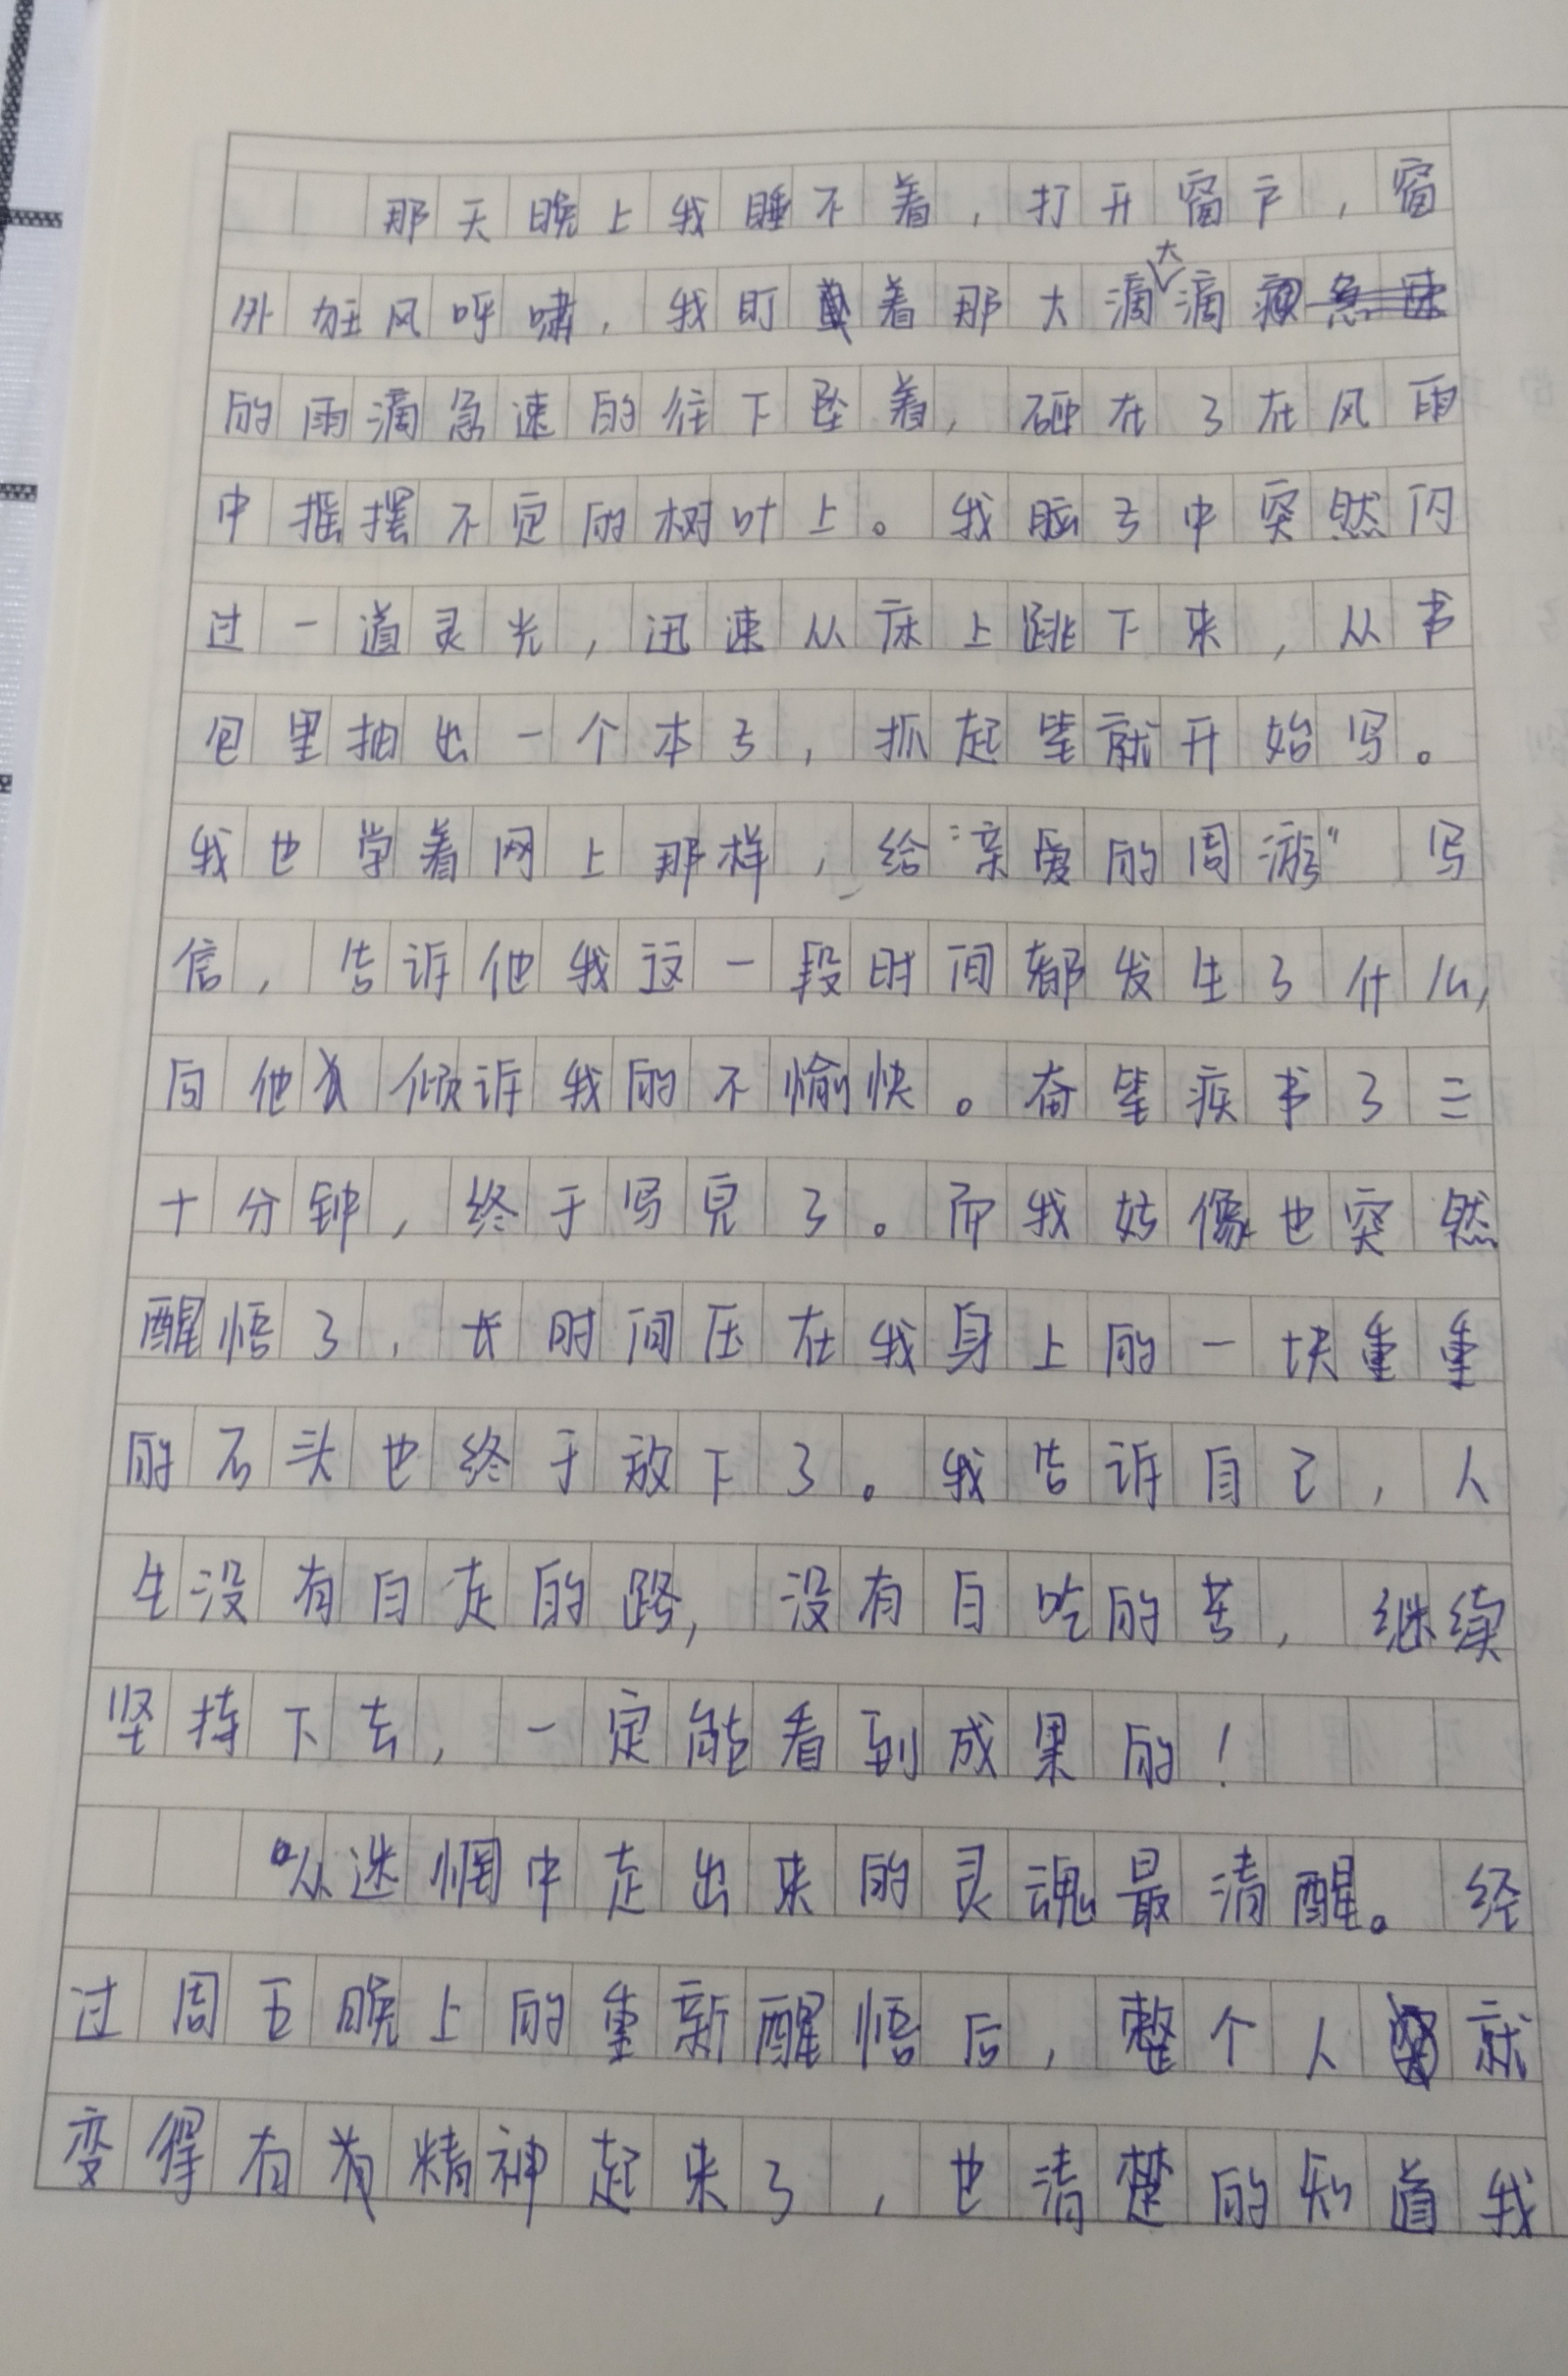 那天晚上我睡不着，打开窗户，窗
外狂风呼啸，我盯着那大滴大滴
的雨滴急速的往下坠着，砸在了在风雨
中摇摆不定的树叶上。我脑子中突然闪
过一道灵光，迅速从床上跳下来，从书
包里抽出一个本子，抓起笔就开始写。
我也学着网上那样，给“亲爱的周游”写
信，告诉他我这一段时间都发生了什么，
向他倾诉我的不愉快。奋笔疾书了三
十分钟，终于写完了。而我好像也突然
醒悟了，长时间压在我身上的一块重重
的石头也终于放下了。我告诉自己，人
生没有白走的路，没有白吃的苦，继续
坚持下去，一定能看到成果的！
从迷惘中走出来的灵魂最清醒。经
过周五晚上的重新醒悟后，整个人就
变得有精神起来了，也清楚的知道我